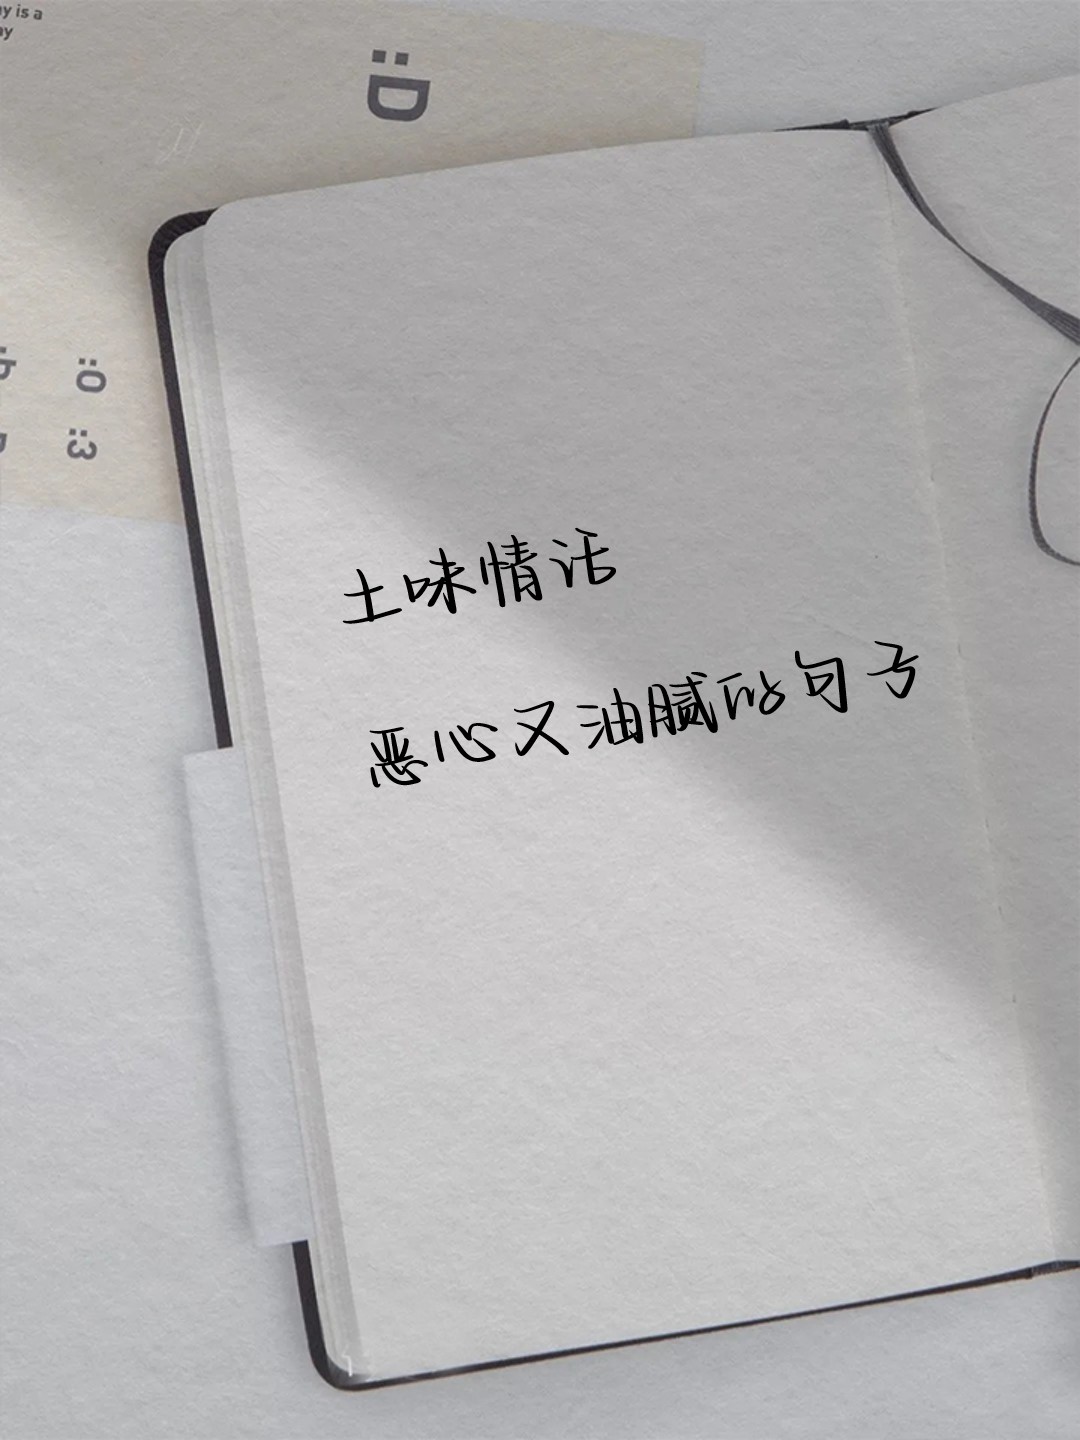 ay is a
ay
:D
:O
:3
土味情话
恶心又油腻的句子